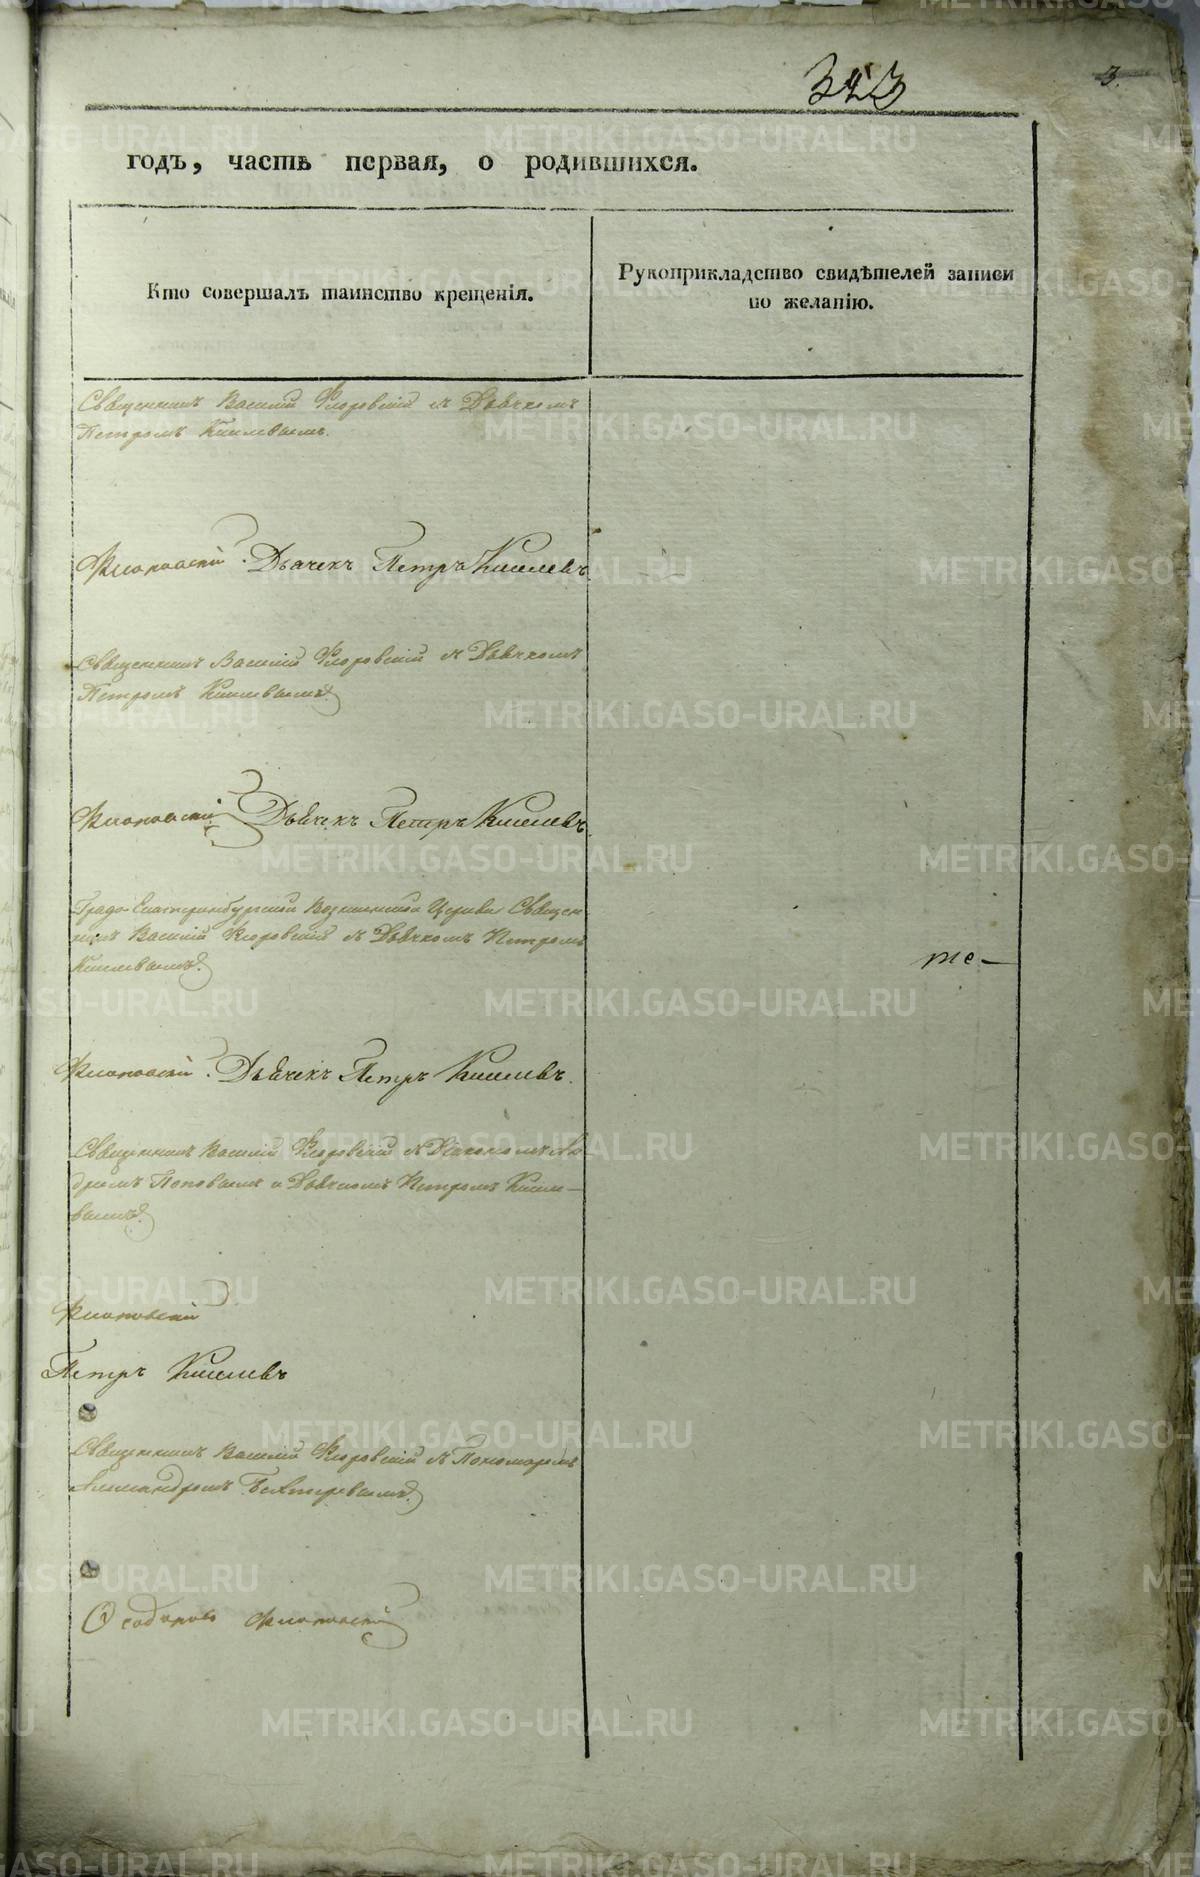 323
3.
годъ, часть первая, о родившихся.
Кто совершалъ таинство крещенія.
Рукоприкладство свидѣтелей записи
по желанію.
Священникъ Василій Флоровскій съ Дьячкомъ
Петромъ Киселевымъ.
Дьячекъ Петръ Киселевъ.
Священникъ Василій Флоровскій съ Дьячкомъ
Петромъ Киселевымъ.
Дьячекъ Петръ Киселевъ.
Градо-Екатеринбургской Вознесенской Церкви Священ-
никъ Василій Флоровскій съ Дьячкомъ Петромъ
Киселевымъ.
те-
Дьячекъ Петръ Киселевъ.
Священникъ Василій Флоровскій съ Діакономъ Ан-
дреемъ Поповымъ и Дьячкомъ Петромъ Кисе-
левымъ.
Петръ Киселевъ
Священникъ Василій Флоровскій съ Пономаремъ
Александромъ Бехтеревымъ.
METRIKI.GASO-URAL.RU